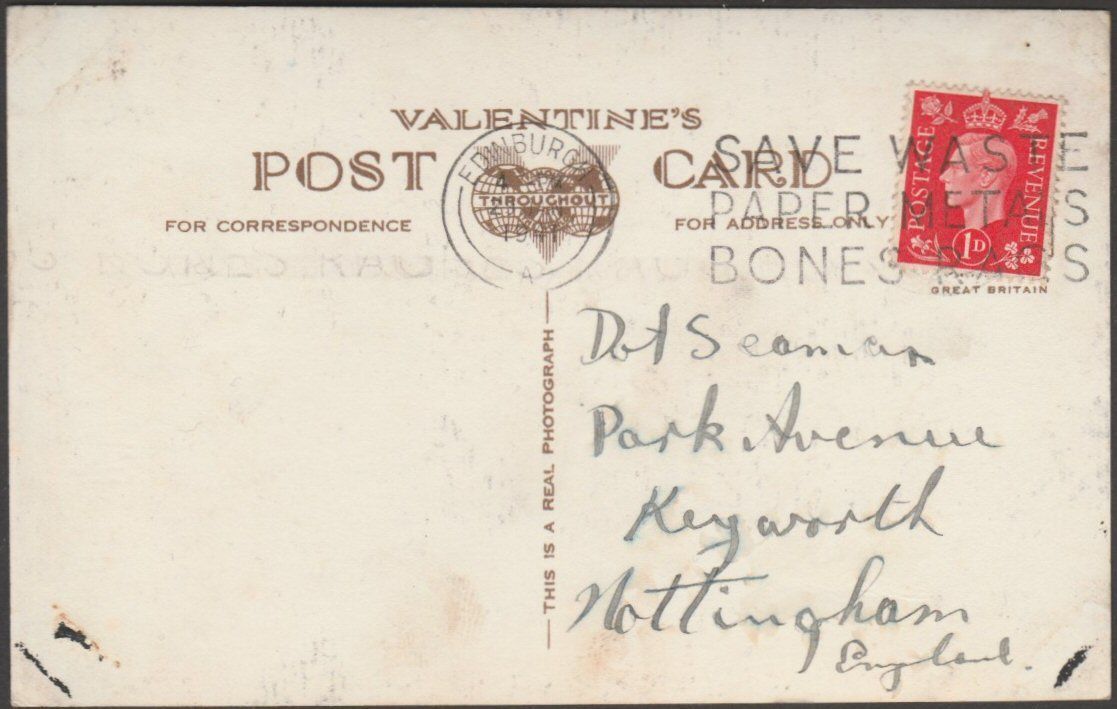 VALENTINE'S
POST CARD
THROUGHOUT
FOR CORRESPONDENCE
FOR ADDRESS ONLY
EDINBURGH
A
SAVE WASTE
PAPER METALS
BONES RAGS
POSTAGE
REVENUE
1D
GREAT BRITAIN
THIS IS A REAL PHOTOGRAPH
Dot Seaman
Park Avenue
Keyworth
Nottingham
England.